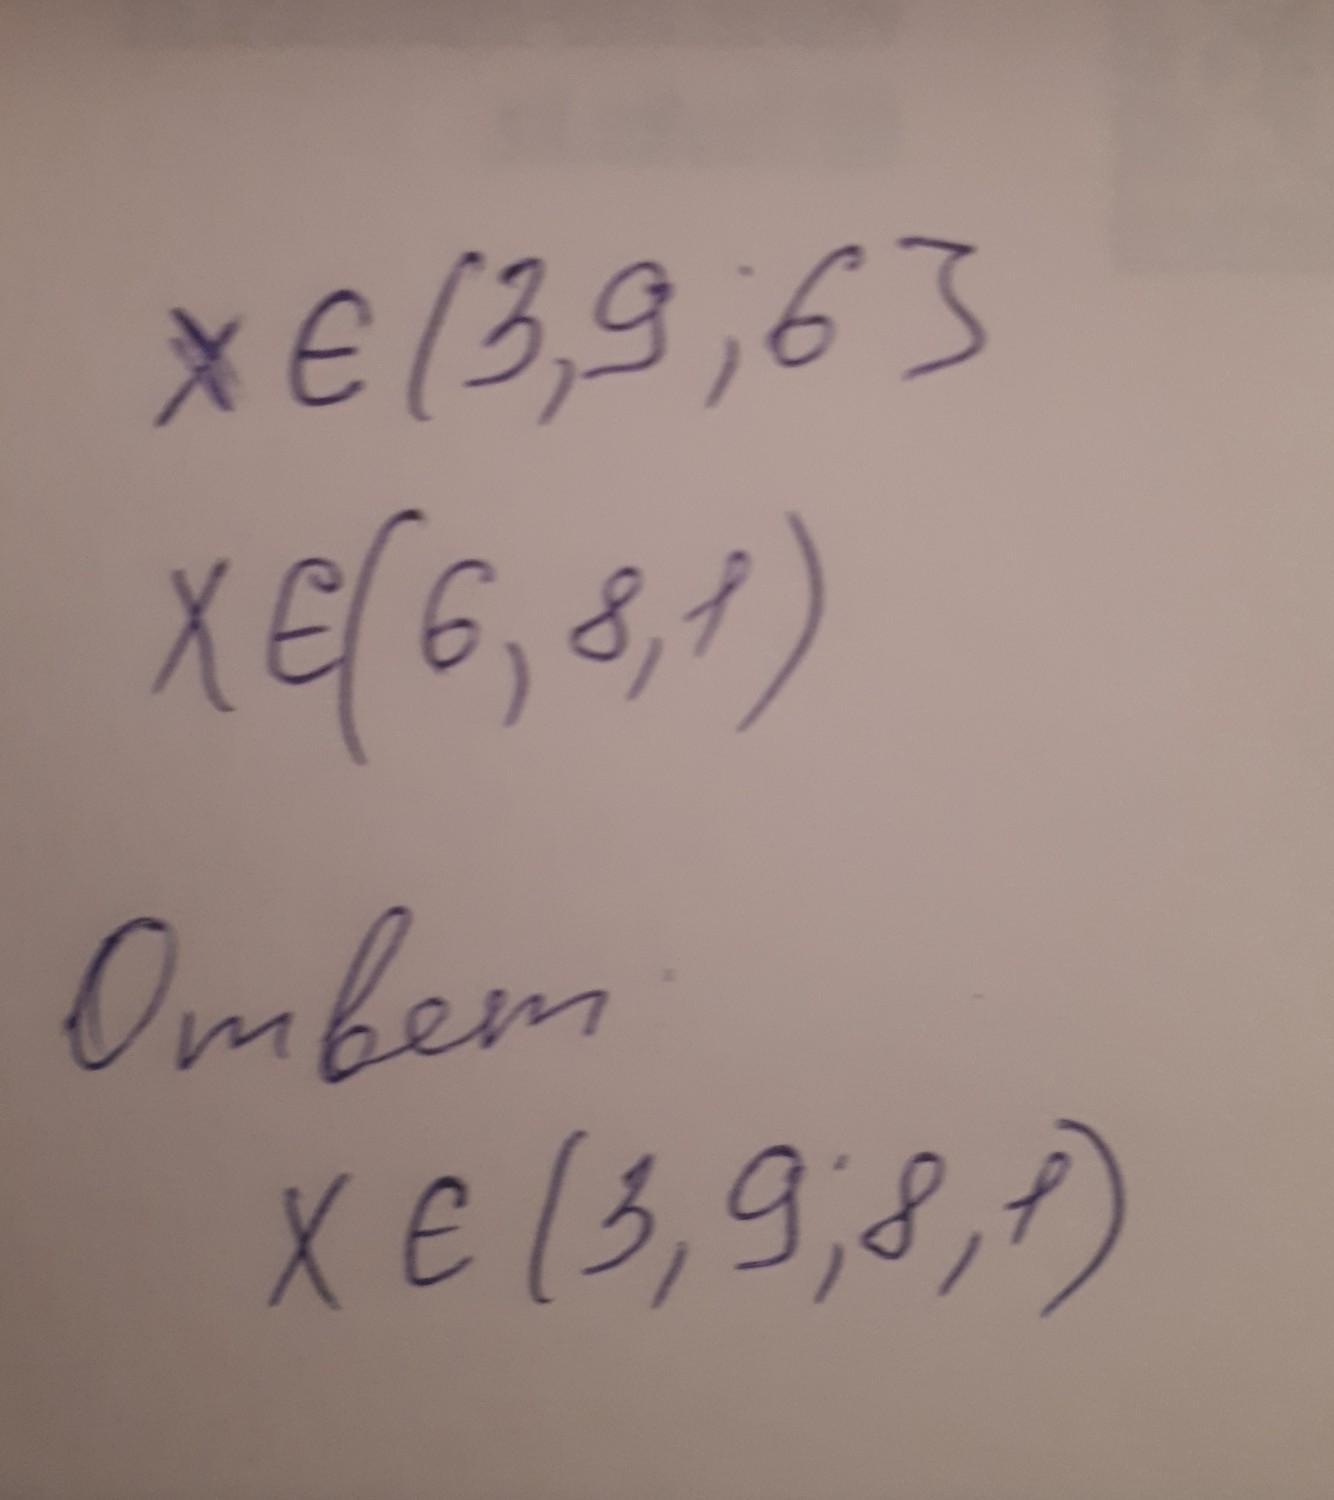 x ∈ (3,9;6]
x ∈ (6, 8,1)
Ответ
x ∈ (3,9;8,1)